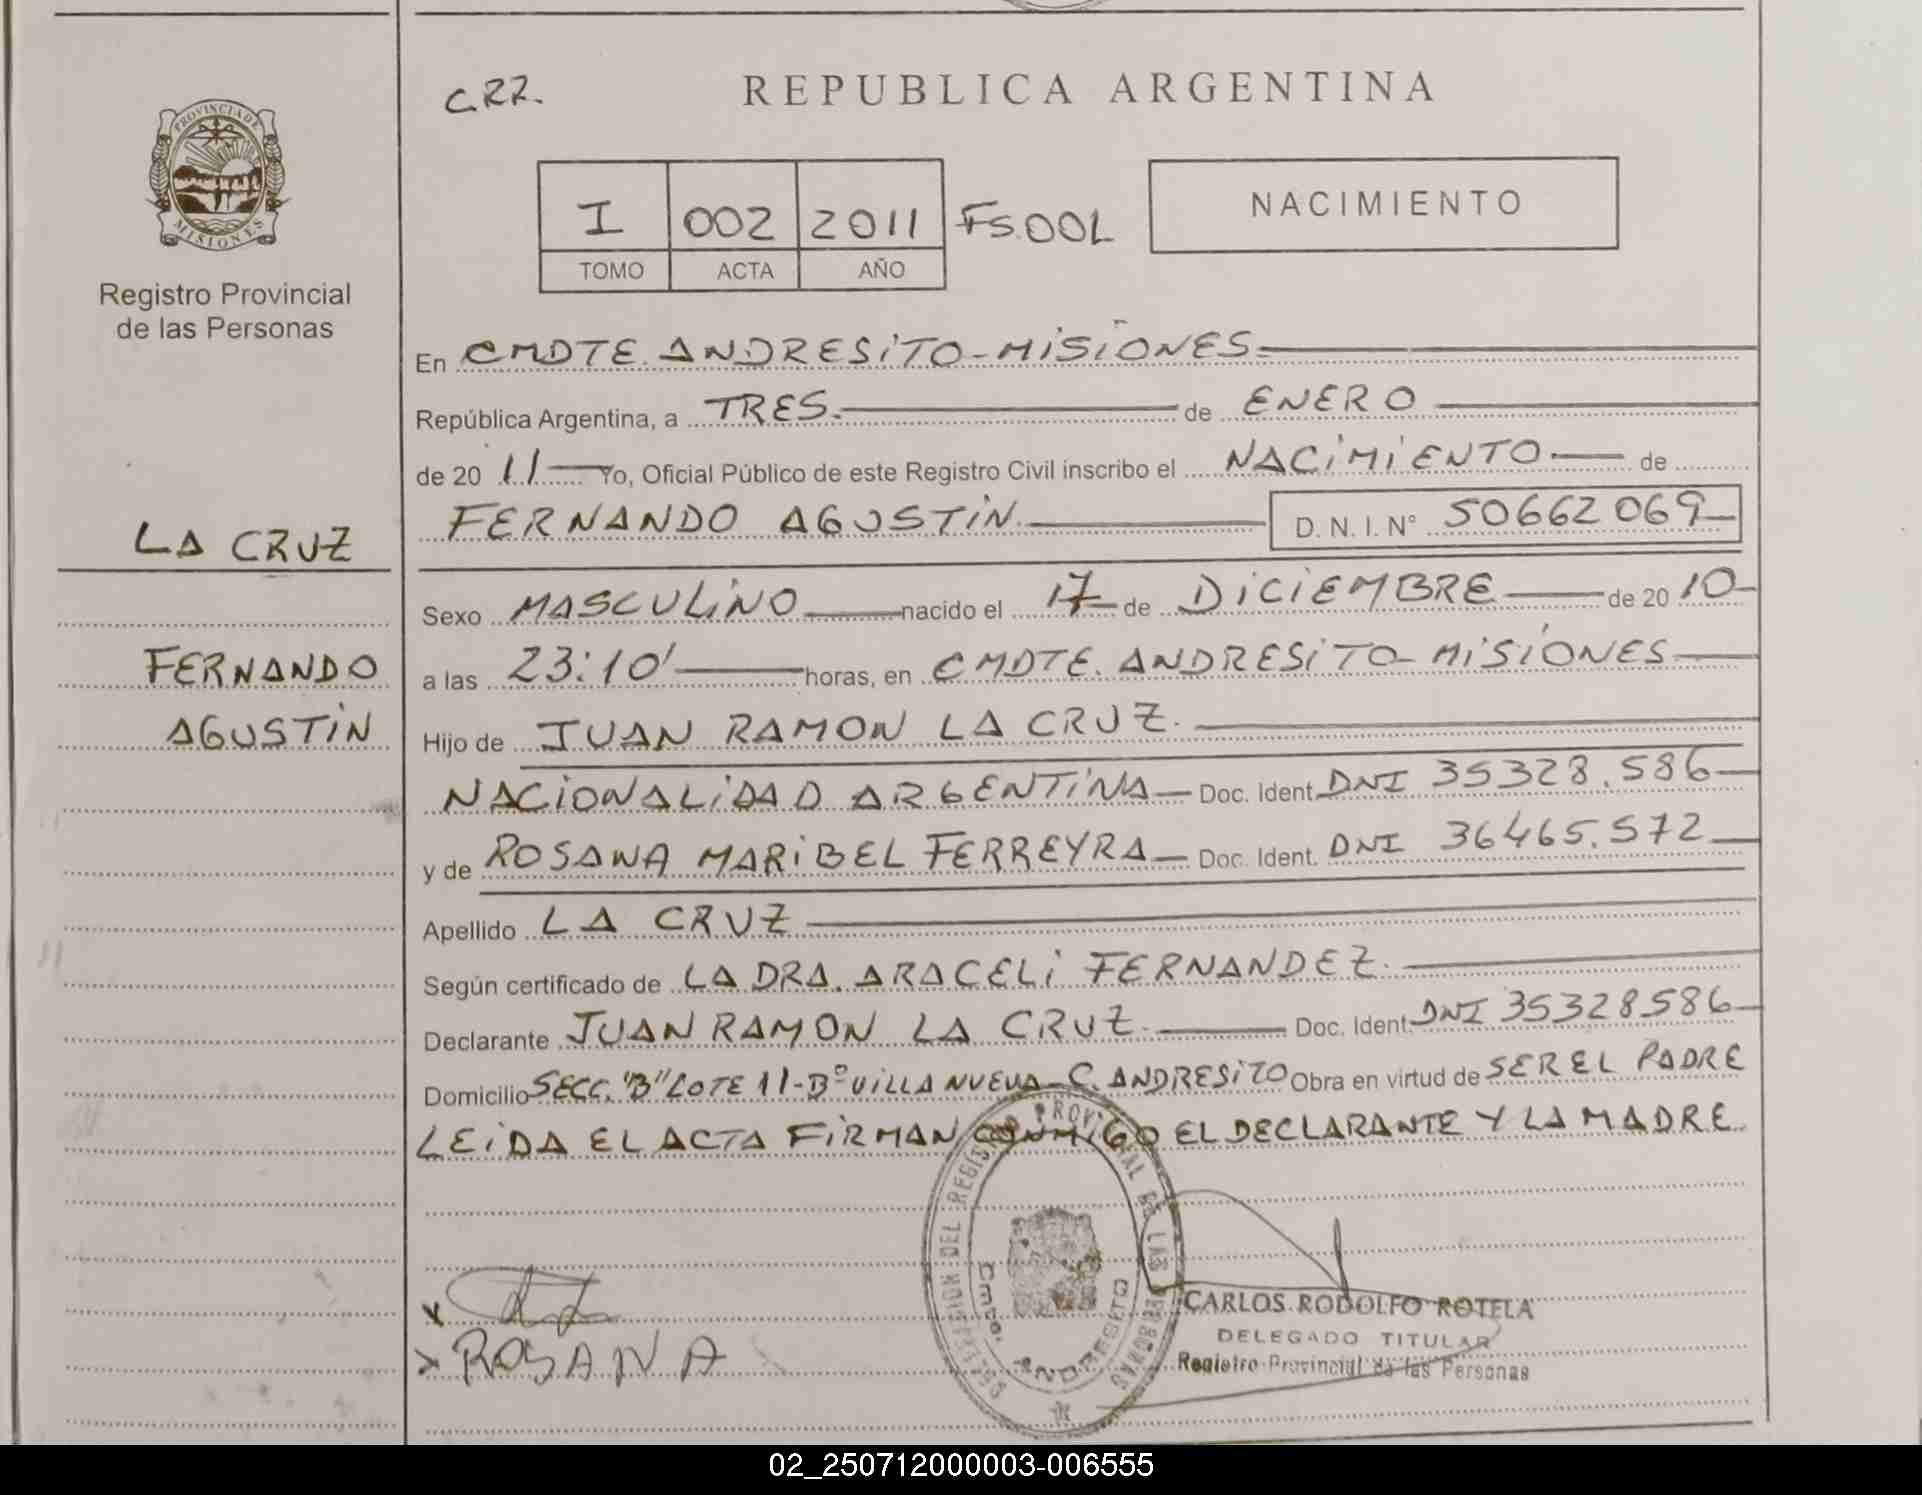 C.R.R.
REPUBLICA ARGENTINA
PROVINCIA DE
MISIONES
Registro Provincial
de las Personas
I 002 2011 FS.001
TOMO ACTA AÑO
NACIMIENTO
En CMDTE. ANDRESITO-MISIONES
República Argentina, a TRES. de ENERO
de 20 11 Yo, Oficial Público de este Registro Civil inscribo el NACIMIENTO de
FERNANDO AGUSTIN. D. N. I. N° 50662069
LA CRUZ
FERNANDO
AGUSTIN
Sexo MASCULINO nacido el 17 de DICIEMBRE de 20 10
a las 23:10' horas, en CMDTE. ANDRESITO-MISIONES
Hijo de JUAN RAMON LA CRUZ.
NACIONALIDAD ARGENTINA Doc. Ident. DNI 35328.586
y de ROSANA MARIBEL FERREYRA Doc. Ident. DNI 36465.572
Apellido LA CRUZ
Según certificado de LA DRA. ARACELI FERNANDEZ.
Declarante JUAN RAMON LA CRUZ. Doc. Ident. DNI 35328586
Domicilio SECC. "B" LOTE 11-B° VILLA NUEVA-C. ANDRESITO Obra en virtud de SER EL PADRE
LEIDA EL ACTA FIRMAN CONMIGO EL DECLARANTE Y LA MADRE
DEL REGISTRO PROVINCIAL DE LAS PERSONAS
CMDO. ANDRESITO
CARLOS RODOLFO ROTELA
DELEGADO TITULAR
Registro Provincial de las Personas
ROSANA
02_250712000003-006555